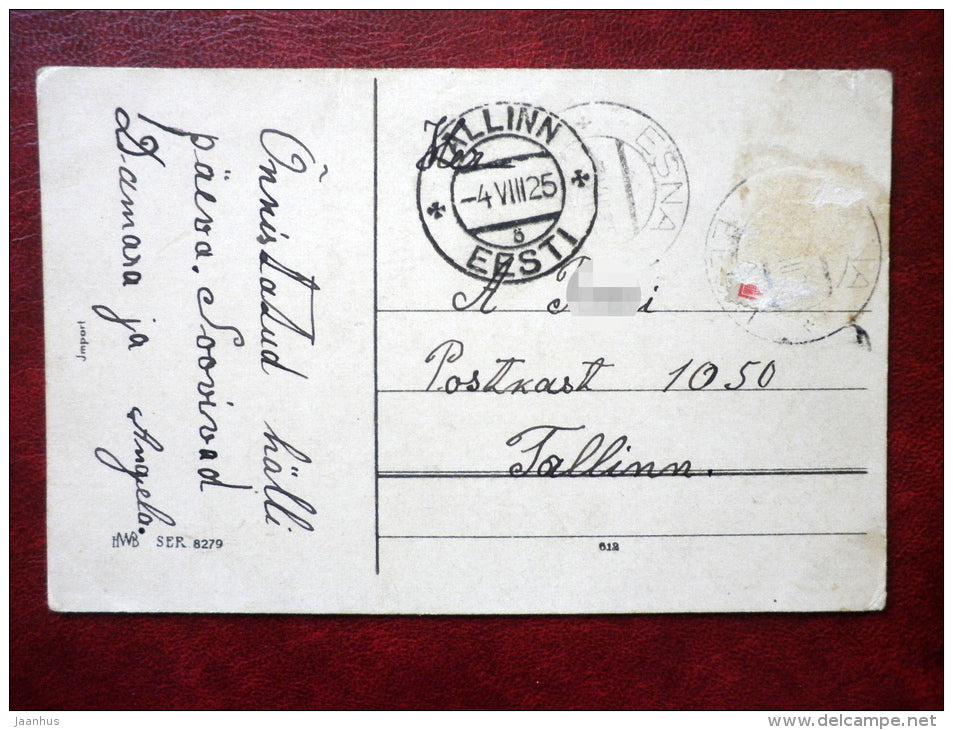 Õnnistatud hälli
päeva. Soovivad
Damara ja Angela.
Import
HWB SER. 8279
TALLINN
-4 VIII 25
EESTI
ESNA
Herr
A T i
Postkast 1050
Tallinn.
612
Jaanhus
www.delcampe.net